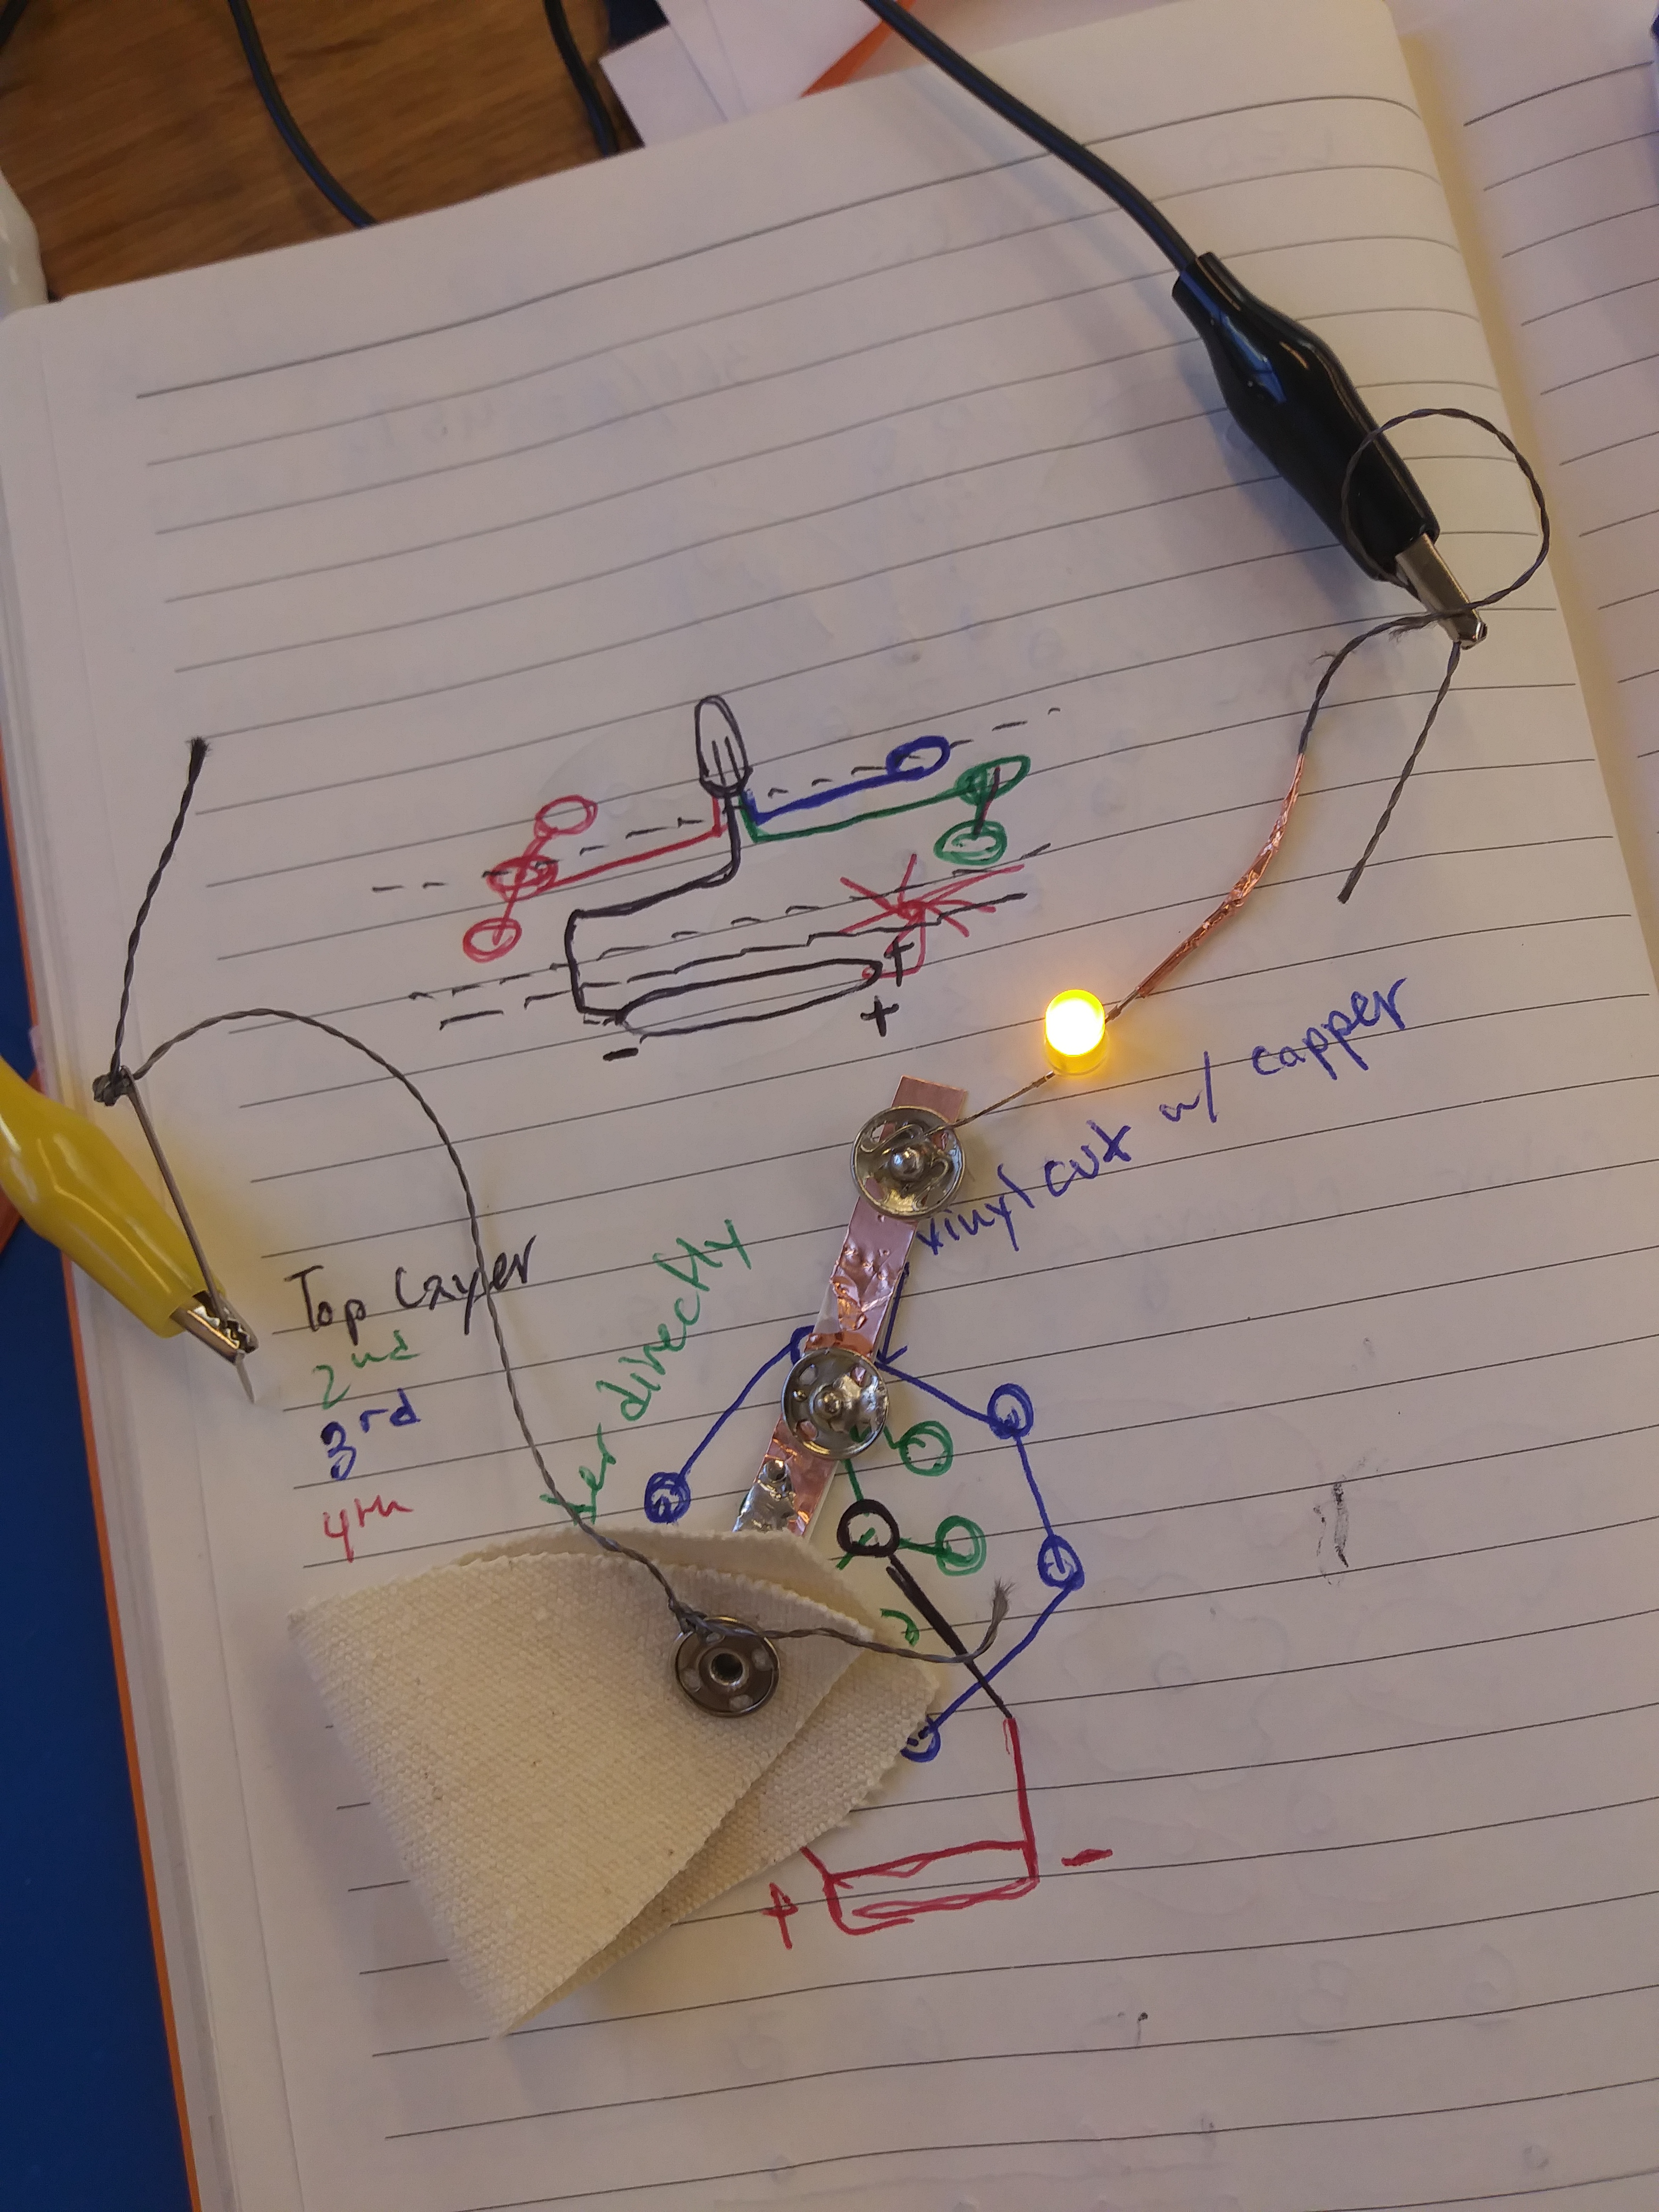 -
+
+
vinyl cut w/ capper
der directly
Top Layer
2nd
3rd
4th
+
-